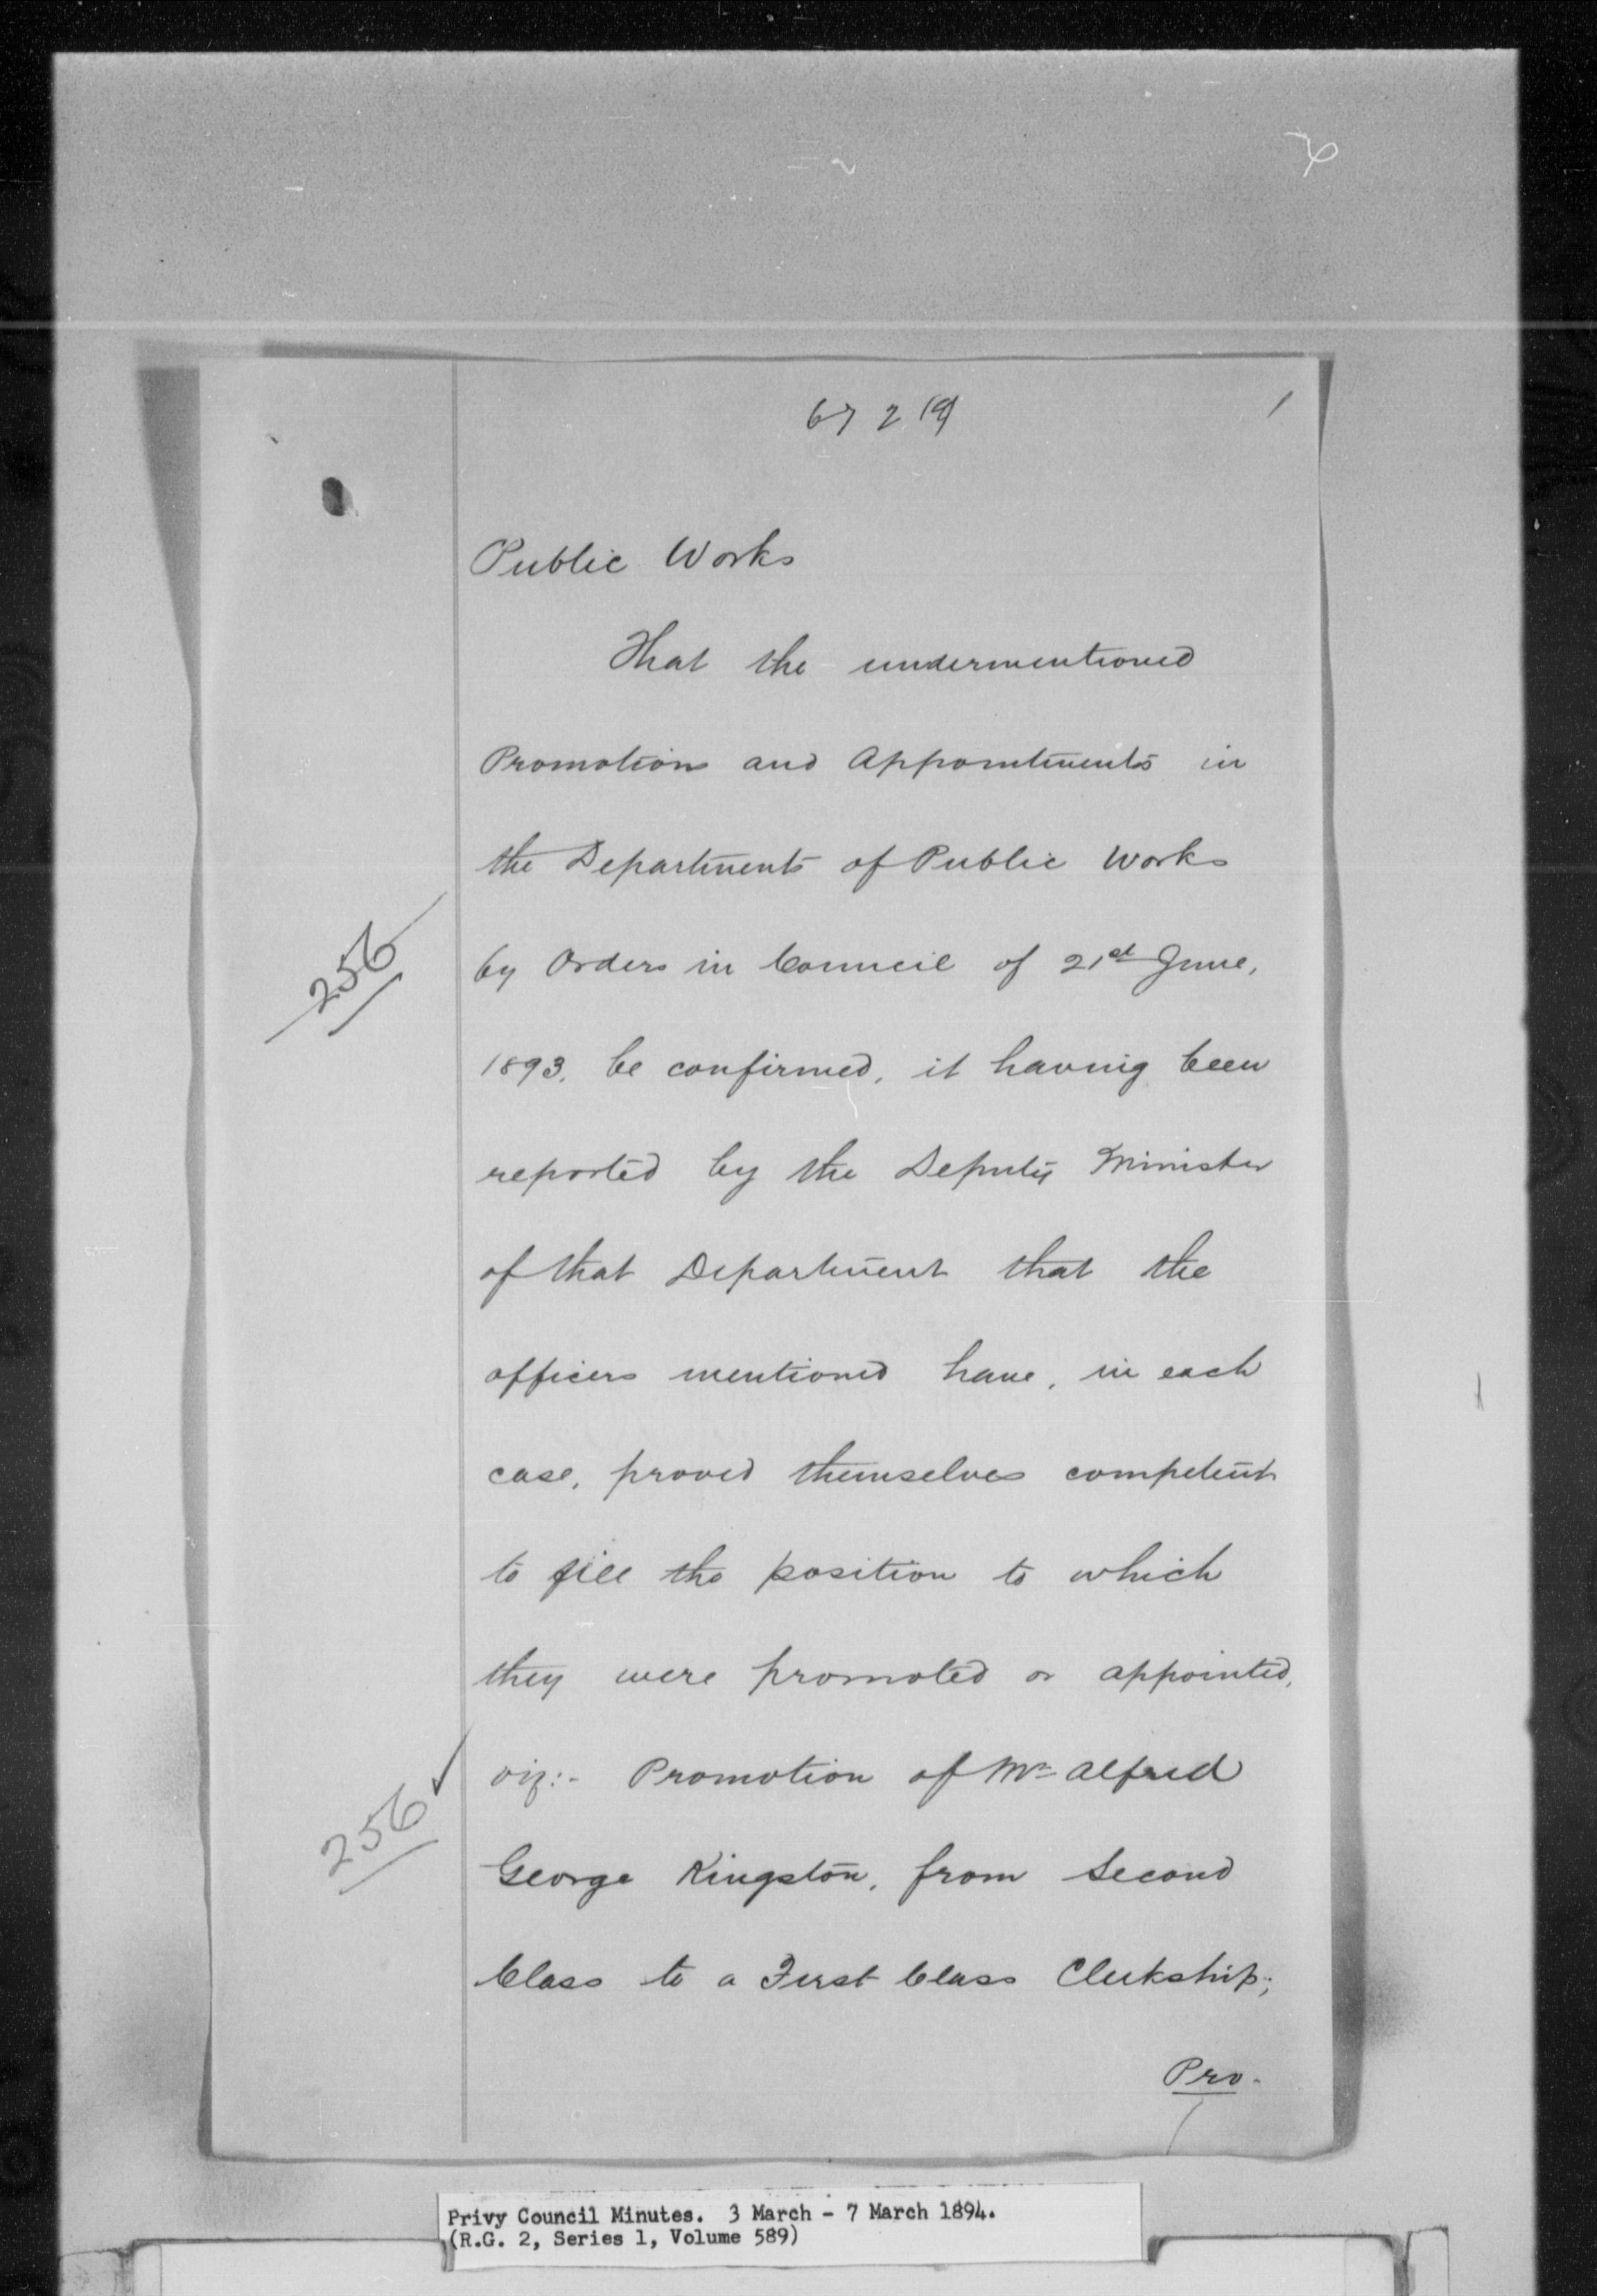 67219
Public Works
That the undermentioned
Promotions and Appointments in
the Departments of Public Works
256
by Orders in Council of 21st June,
1893, be confirmed, it having been
reported by the Deputy Minister
of that Department that the
officers mentioned have, in each
case, proved themselves competent
to fill the position to which
they were promoted or appointed,
viz:- Promotion of Mr Alfred
256
George Kingston, from Second
Class to a First Class Clerkship;
Pro-
Privy Council Minutes. 3 March - 7 March 1894.
(R.G. 2, Series 1, Volume 589)